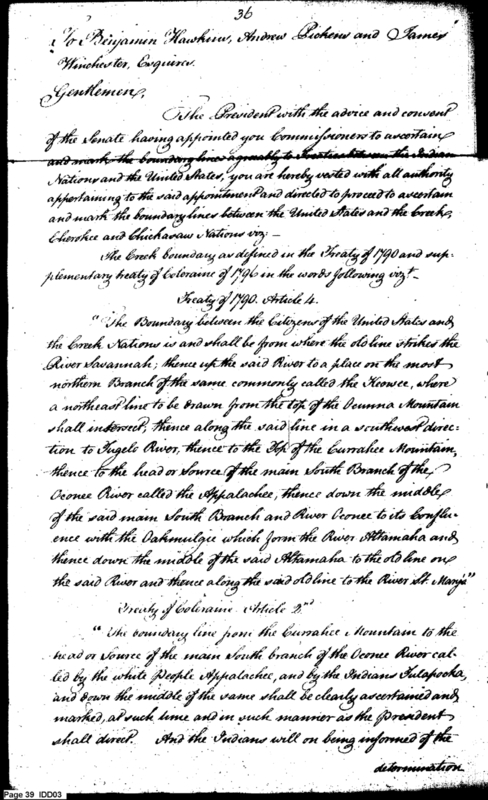 36
To Benjamin Hawkins, Andrew Pickens and James
Winchester, Esquires.
Gentlemen,
The President with the advice and consent
of the Senate having appointed you Commissioners to ascertain
and mark the boundary lines agreably to Treaties between the Indian
Nations and the United States, you are hereby vested with all authority
appertaining to the said appointment and directed to proceed to ascertain
and mark the boundary lines between the United States and the Creek,
Cherokee and Chickasaw Nations viz –
The Creek boundary as defined in the Treaty of 1790 and sup-
plementary treaty of Coloraine of 1796 in the words following vizt –
Treaty of 1790. Article 4.
"The Boundary between the Citizens of the United States and
the Creek Nations is and shall be from where the old line strikes the
River Savannah; thence up the said River to a place on the most
northern Branch of the same commonly called the Keowee, where
a northeast line to be drawn from the top of the Ocunna Mountain
shall intersect, thence along the said line in a southwest direc-
tion to Tugelo River, thence to the Top of the Currahee Mountain,
thence to the head or Source of the main South Branch of the
Oconee River called the Appalachee, thence down the middle
of the said main South Branch and River Oconee to its Conflu-
ence with the Oakmulgie which form the River Altamaha and
thence down the middle of the said Altamaha to the old line on
the said River and thence along the said old line to the River St. Marys"
Treaty of Coleraine Article 2nd
"The boundary line from the Currahee Mountain to the
head or Source of the main South branch of the Oconee River cal-
led by the white People Appalachee, and by the Indians Tulapocka,
and down the middle of the same shall be clearly ascertained and
marked, at such time and in such manner as the President
shall direct. And the Indians will on being informed of the
determination
Page 39 IDD03